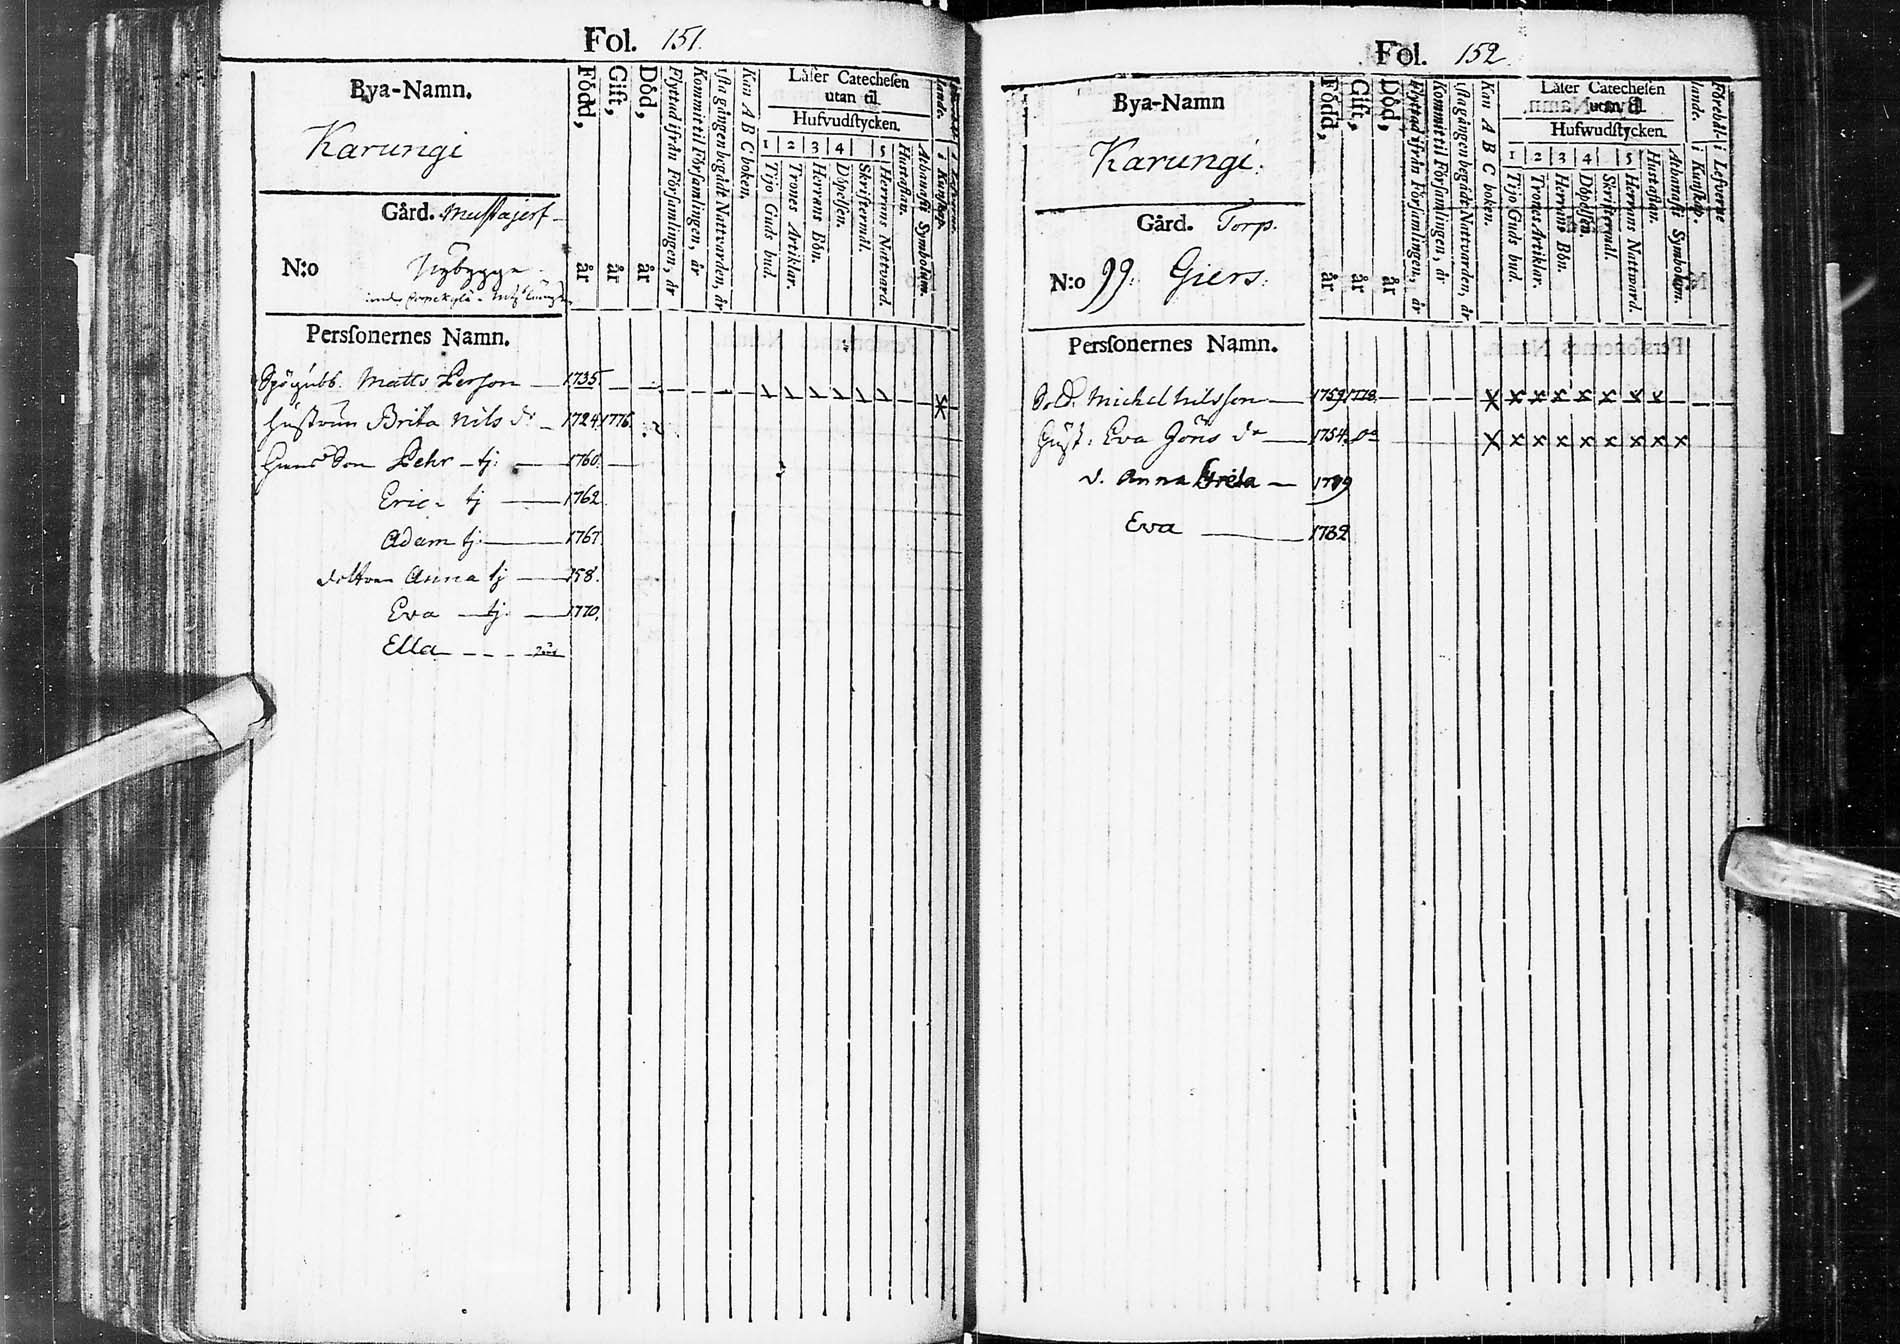 Fol. 151.
Bya-Namn.
Karungi
Gård. Mustajerf
N:o Nybygge
Persſonernes Namn.
Född, år
Gift, år
Död, år
Flyttad ifrån Förſamlingen, år
Kommit til Förſamlingen, år
1ſta gången begådt Nattvarden, år
Kan A B C boken.
Läſer Catecheſen
utan til.
Hufvudſtycken.
1 2 3 4 5
Tijo Guds bud.
Trones Artiklar.
Herrans Bön.
Döpelſen.
Skriftermål.
Herrans Nattvard.
Huſtaflan.
Athanaſii Symbolum.
Matts Perſon 1735.
Huſtrun Brita Nils dr 1724. 1776.
Pehr tj. 1760.
Eric tj 1762.
Adam tj. 1767.
Anna tj 158.
Eva tj. 1770.
Ella
Fol. 152.
Bya-Namn
Karungi.
Gård. Torp.
N:o 99. Giers.
Persſonernes Namn.
Född, år
Gift, år
Död, år
Flyttad ifrån Förſamlingen, år
Kommit til Förſamlingen, år
1ſta gången begådt Nattvarden, år
Kan A B C boken.
Läſer Catecheſen
utan til.
Hufwudſtycken.
1 2 3 4 5
Tijo Guds bud.
Trones Artiklar.
Herrans Bön.
Döpelſen.
Skriftermål.
Herrans Nattvard.
Huſtaflan.
Athanaſii Symbolum.
Förehållande. i Kunſkap.
i Lefverne
Sold. Michel Nilsſon 1759. x x x x x x x x
Huſt. Eva Jöns dr 1754. do x x x x x x x x x
d. Anna Greta
Eva